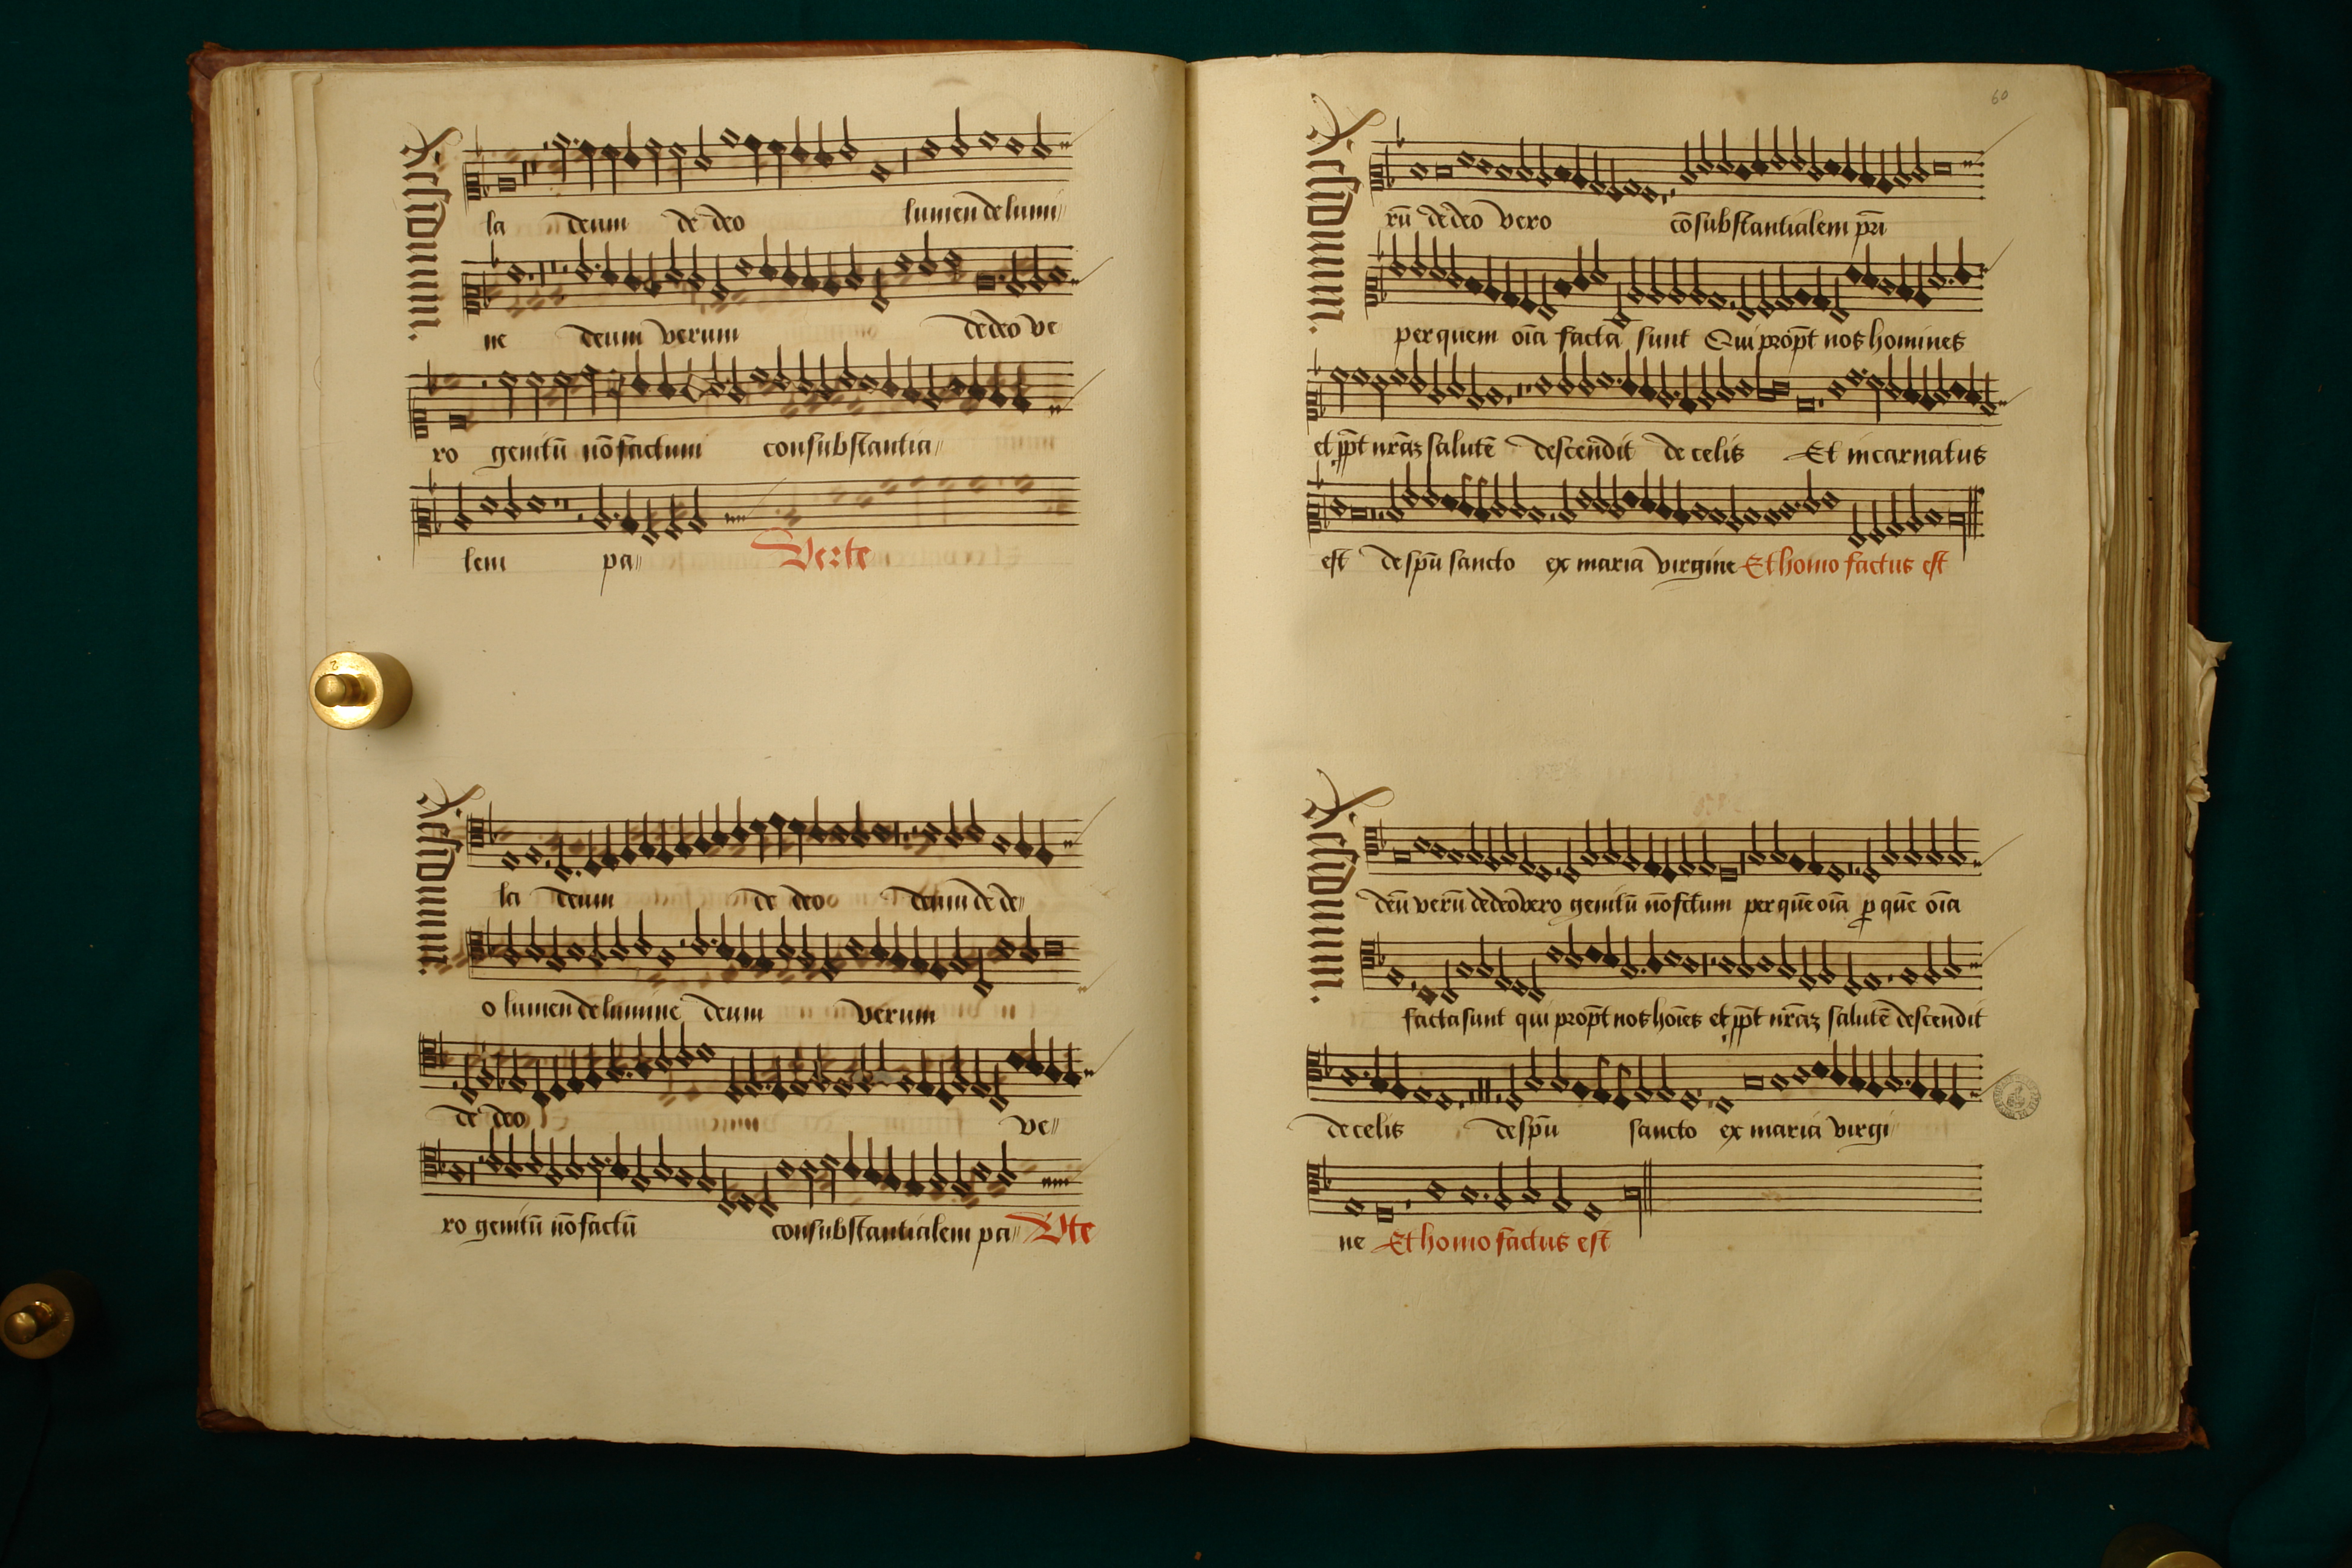 Residuum.
la deum de deo lumen de lumi
ne deum verum de deo ve
ro genitū nō factum consubstantia
lem pa Verte
Residuum.
la deum de deo deum de de
o lumen de lumine deum verum
de deo ve
ro genitū nō factū consubstantialem pa Vte
60
Residuum.
rū de deo vero cōsubstantialem pri
per quem oīa facta sunt Qui propt nos homines
et ppt nrāz salutē descendit de celis Et incarnatus
est de spū sancto ex maria virgine Et homo factus est
Residuum.
deū verū de deo vero genitū nō fctum per quē oīa p quē oīa
facta sunt qui propt nos hoīes et ppt nrāz salutē descendit
de celis de spū sancto ex maria virgi
ne Et homo factus est